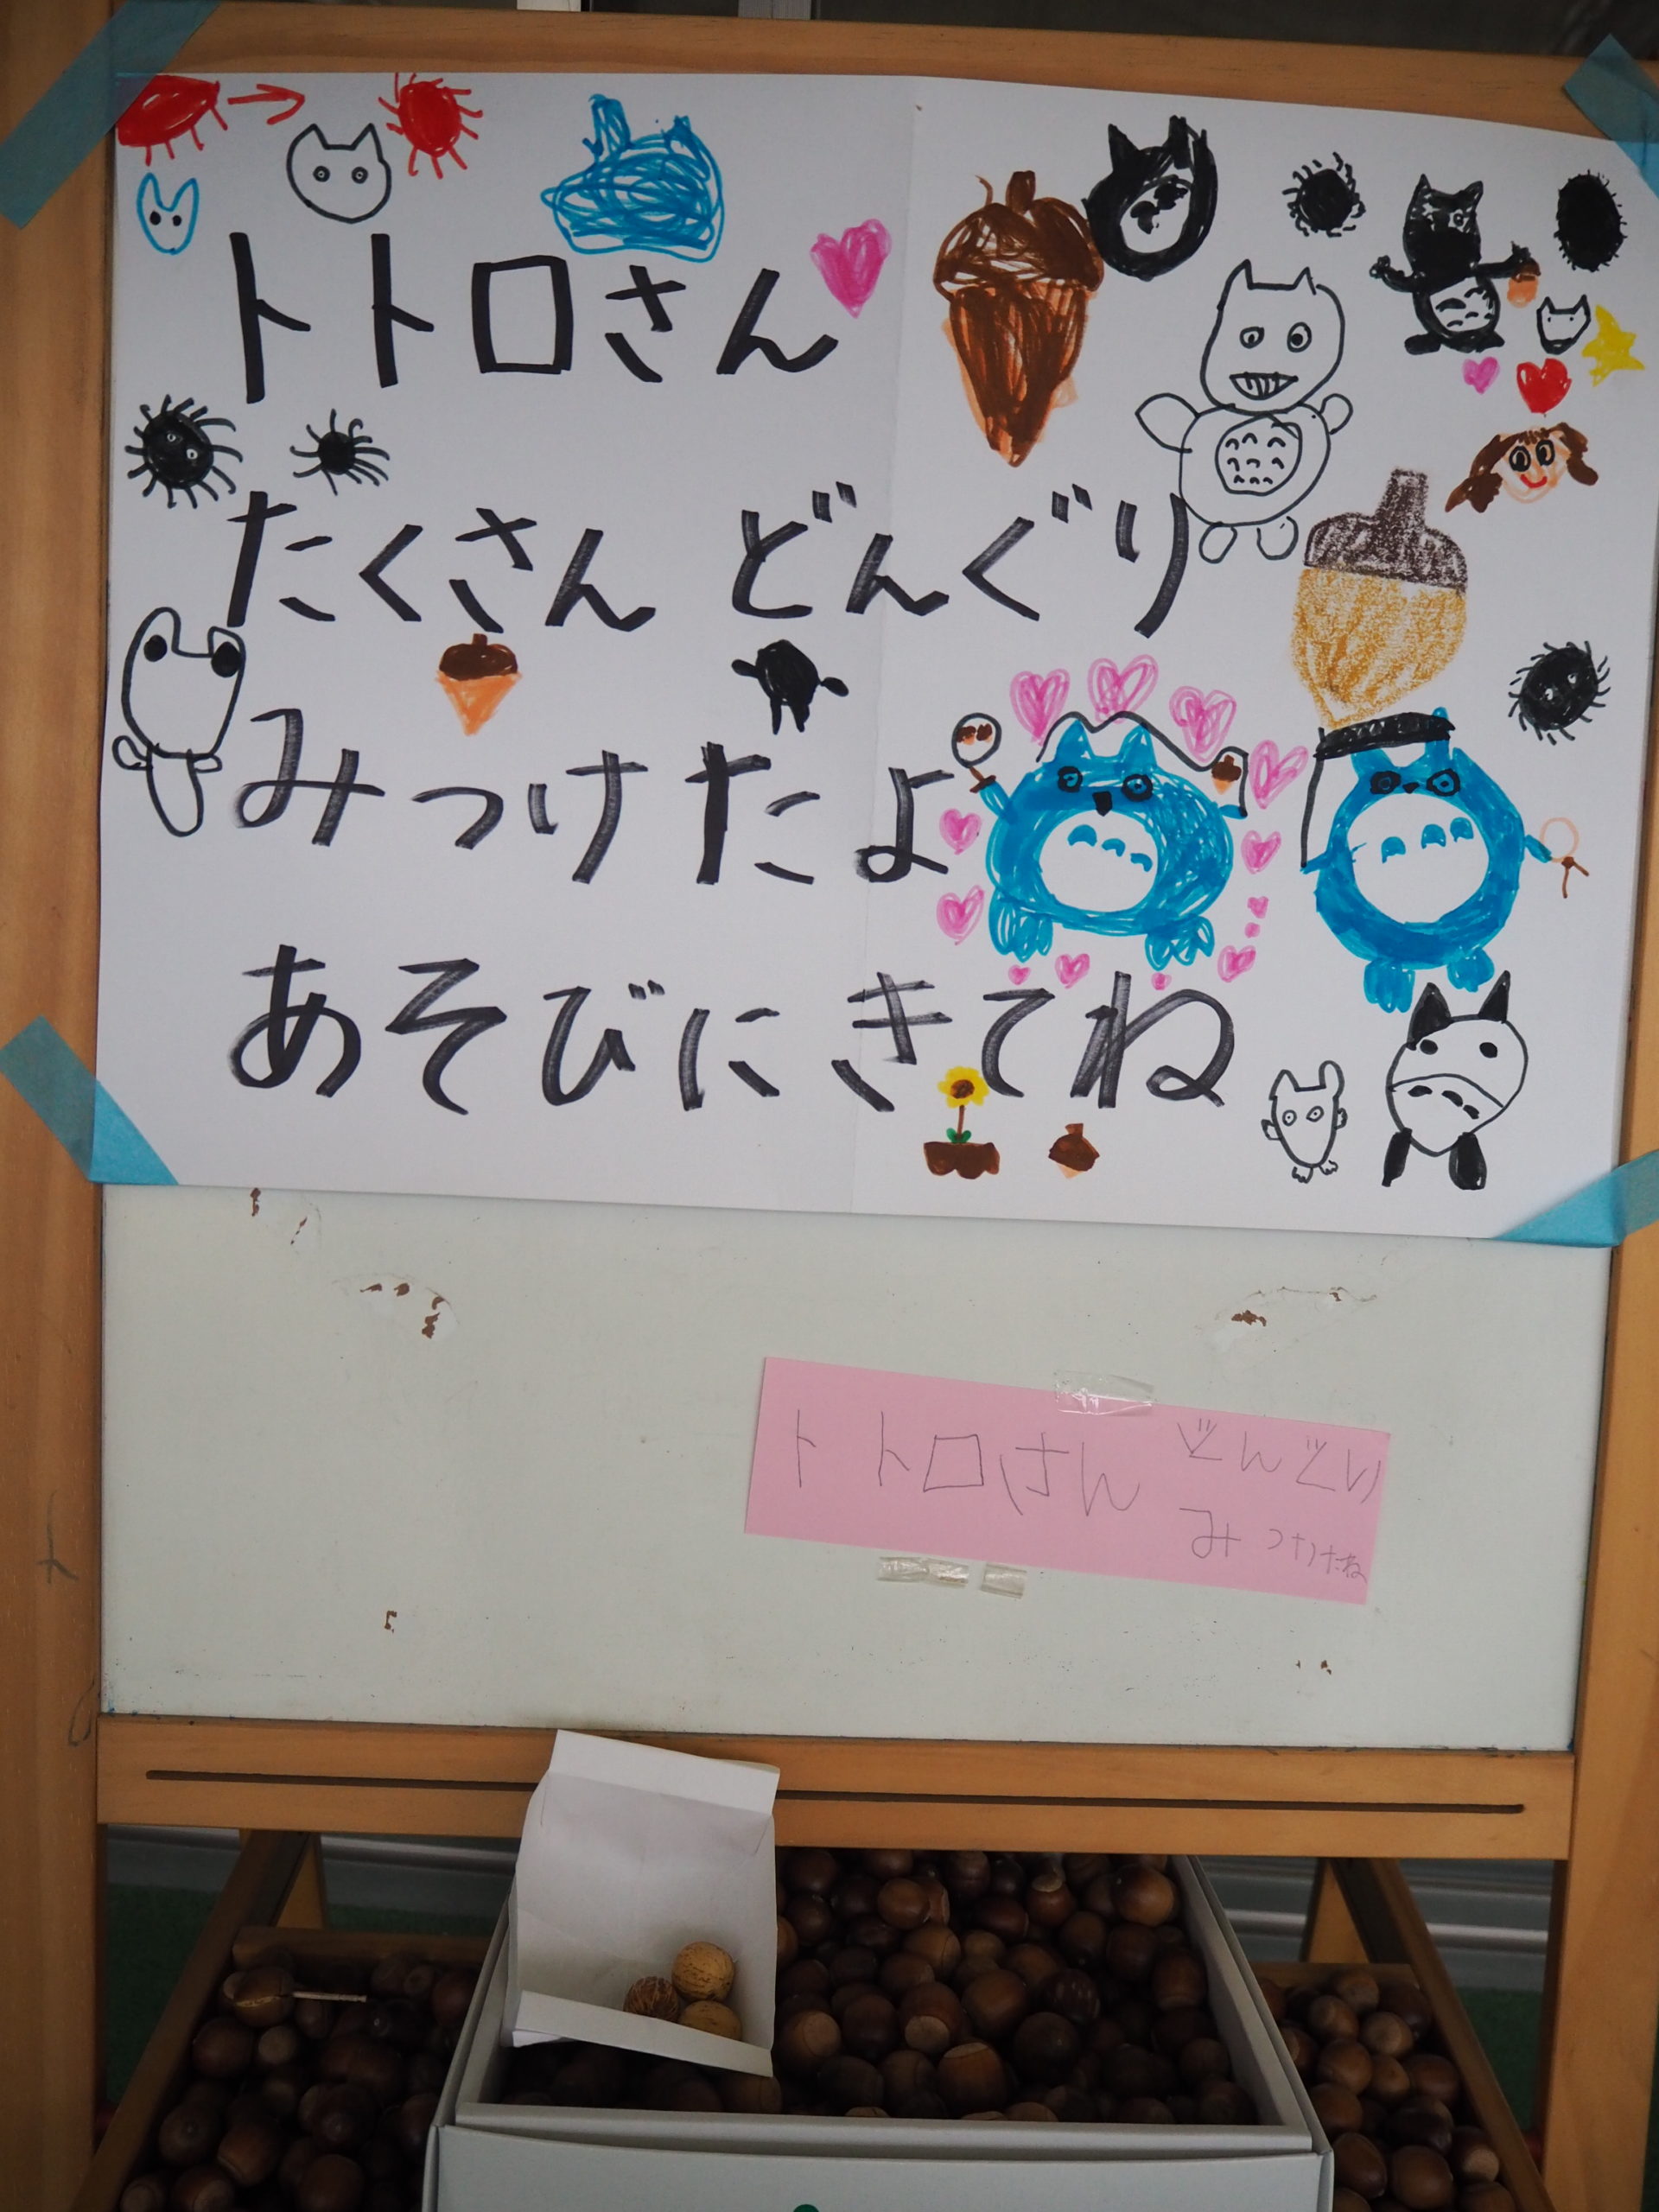 トトロさん
たくさん どんぐり
みつけたよ
あそびに きてね
トトロさん どんぐり
みつけたね